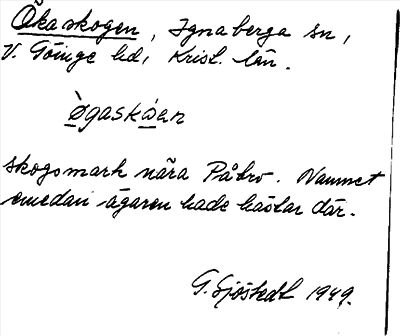 Ökaskogen, Ignaberga sn,
V. Göinge hd, Krist. län.
ø̀gaskåen
skogsmark nära Påbro. Namnet
emedan ägaren hade hästar där.
G. Sjöstedt 1949.